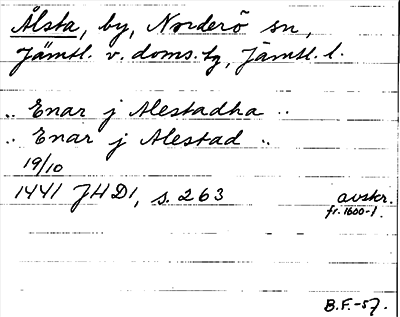 Ålsta, by, Norderö sn,
Jämtl. v. doms. tg, Jämtl. l.
.. Enar j Alestadha ..
.. Enar j Alestad ..
19/10
1441 JHD1, s. 263 avskr.
fr. 1600-t.
B.F.-57.